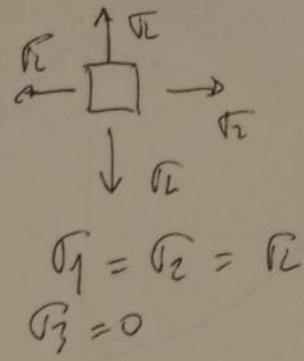 σL
σL
σL
σL
σ1 = σ2 = σL
σ3 = 0